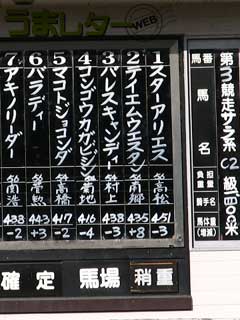 うまレター WEB
第3競走サラ系C2級1400米
馬番 馬名 負担重量 騎手名 馬体重(増減)
1 スターアリエス 56 高松 451 -3
2 テイエムウエスタン 56 南郷 435 +8
3 パレスキャンディー 438 -3
4 コンゴウカガヤシン 54 菊地 416 -4
5 マコトジョコンダ 54 高橋 417 -2
6 パラディー 443 +3
7 アキノリーダー 438 -2
確定 馬場 稍重